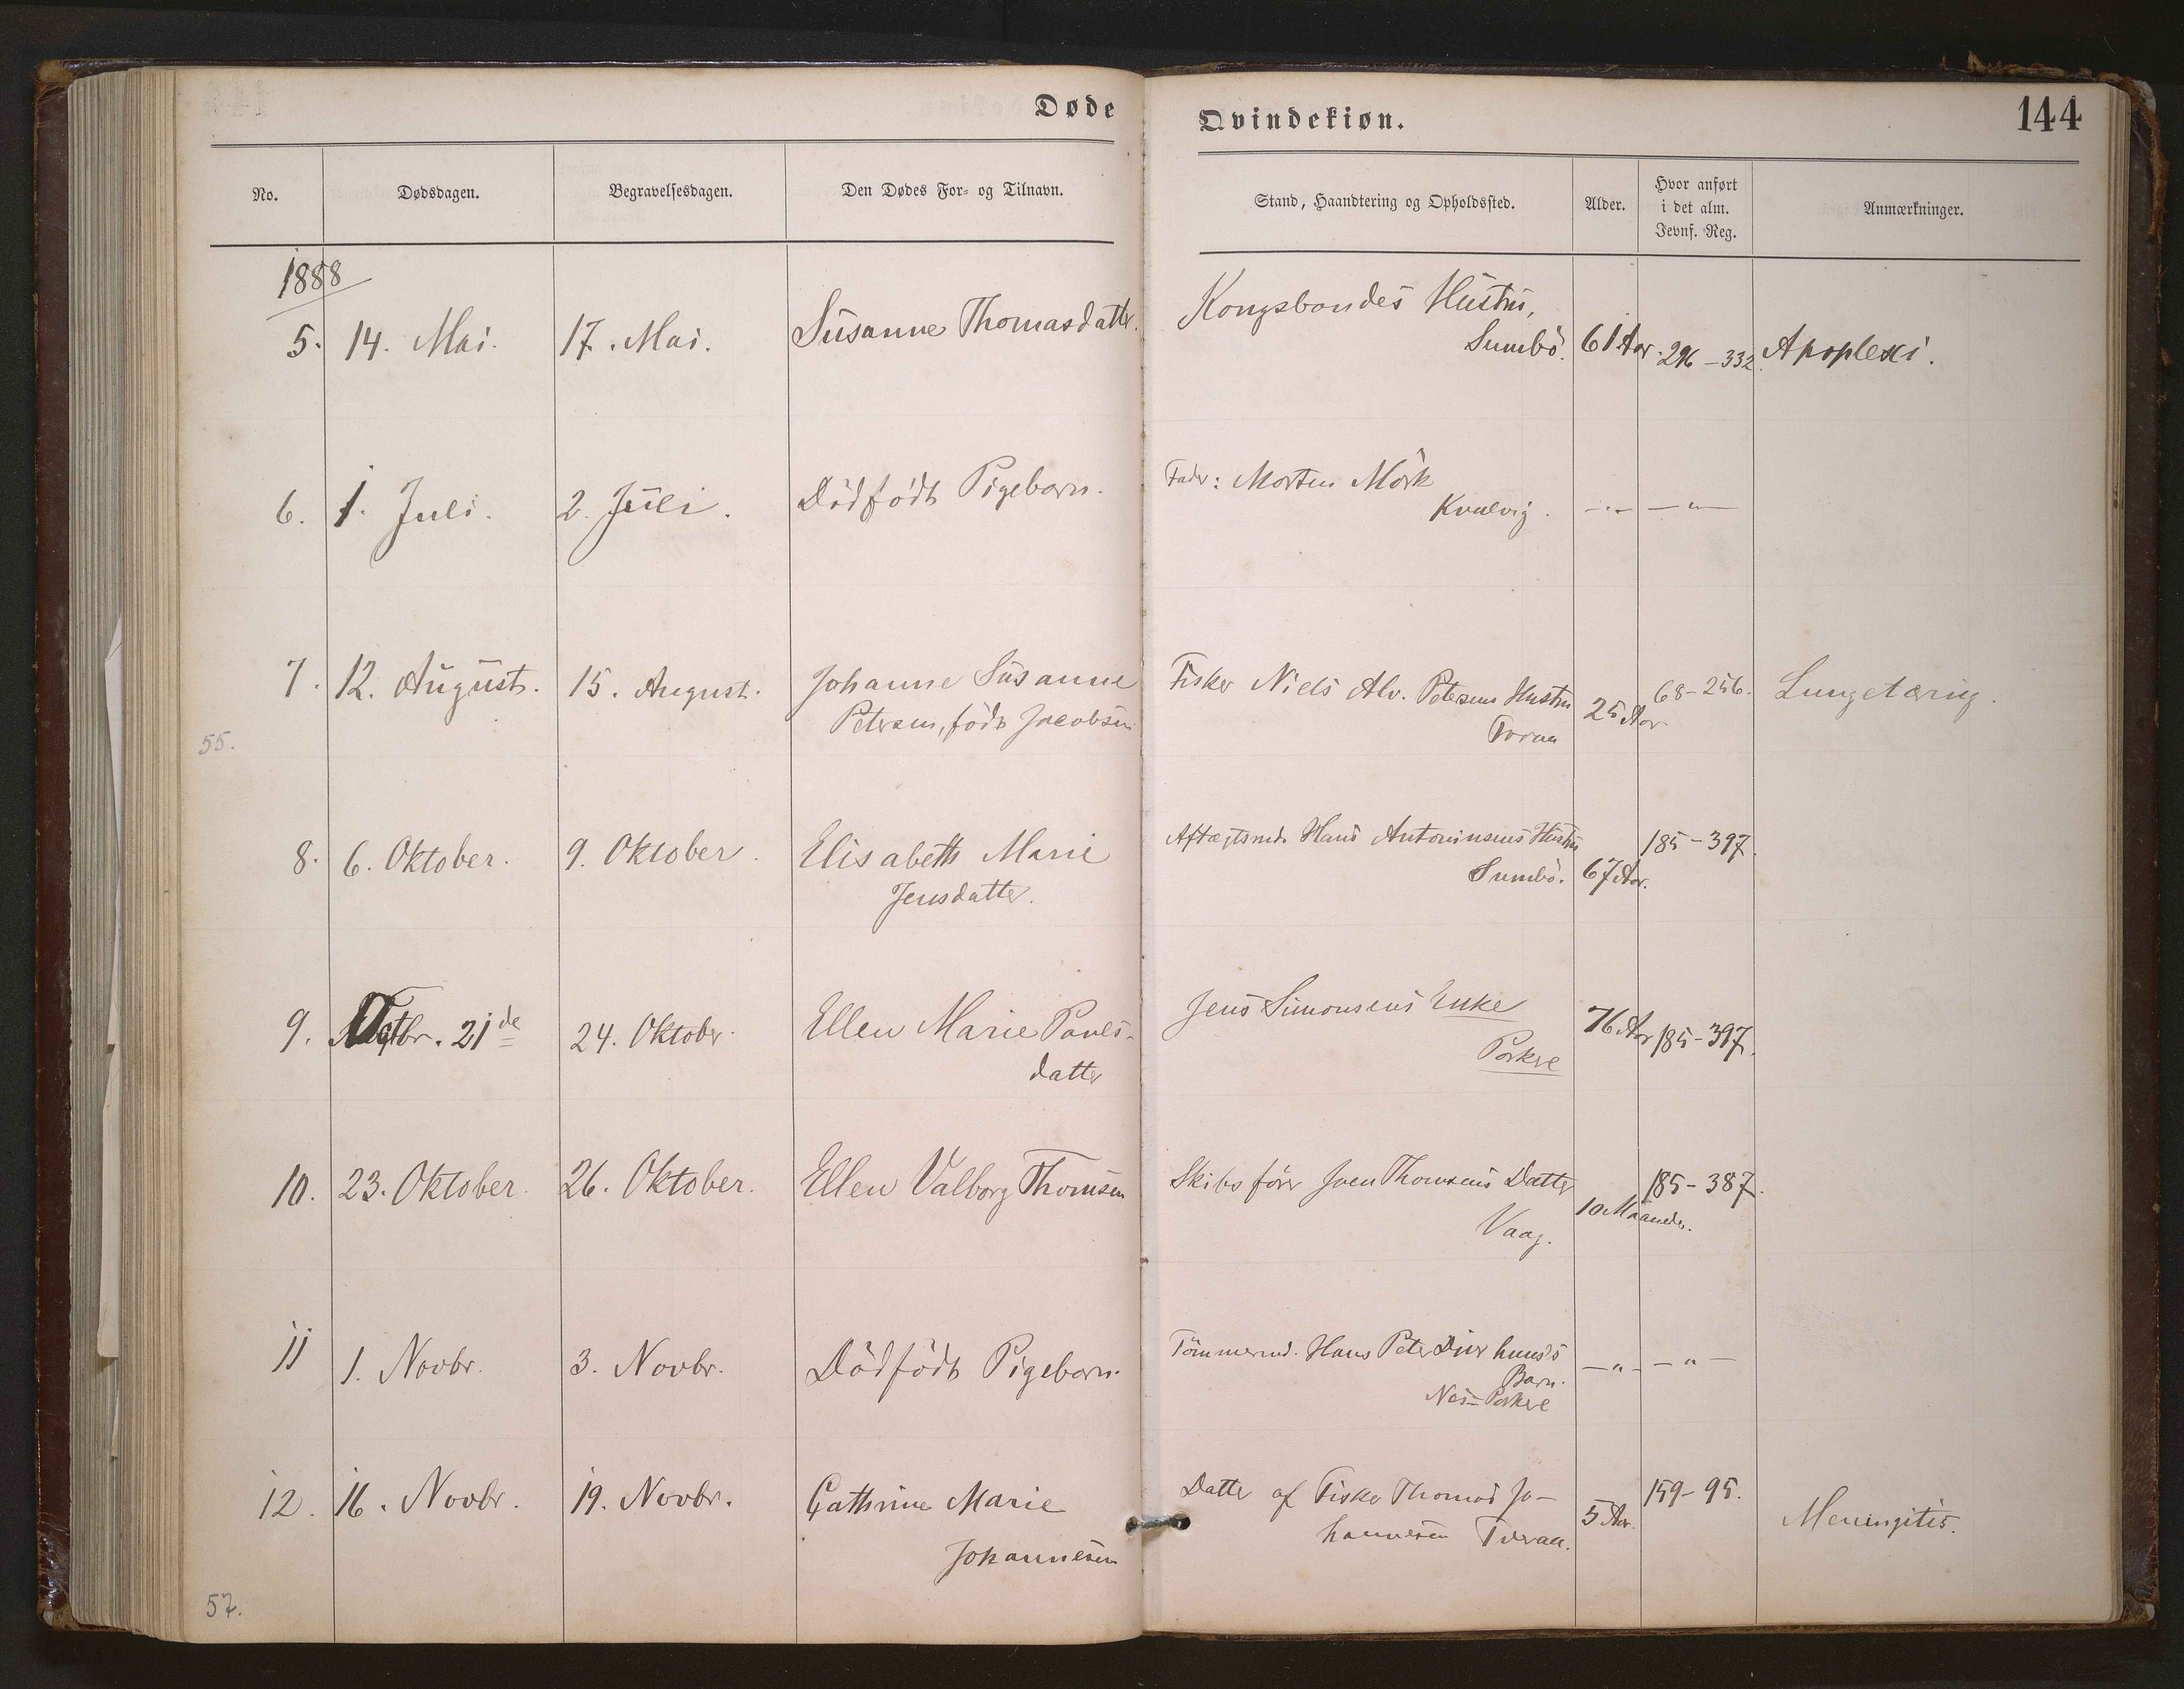 Døde
Qvindekiøn.
144
No.
Dødsdagen.
Begravelsesdagen.
Den Dødes For- og Tilnavn.
Stand, Haandtering og Opholdssted.
Alder.
Hvor anført
i det alm.
Jevnf. Reg.
Anmærkninger.
1888
5. 14. Mai. 17. Mai. Susanne Thomasdatter. Kongsbondes Hustru,
Sumbö. 61 Aar. 296-332. Apoplexi.
6. 1. Juli. 2. Juli. Dödfödt Pigebarn. Fader: Morten Mörk
Kvalvig. —"— —"—
7. 12. August. 15. August. Johanne Susanne Fisker Niels Alv. Petersens Hustru 68-256. Lungetæring.
Petersen, födt Jacobsen Tvraa 25 Aar
55.
8. 6. Oktober. 9. Oktober. Elisabeth Marie Aftægtsmd. Hans Antoninsens Hustru 185-397.
Jensdatter. Sumbö. 67 Aar.
9. Octbr. 21de 24. Oktober. Ellen Marie Pouls- Jens Simonsens Enke 76 Aar 185-397.
datter Porkere
10. 23. Oktober. 26. Oktober. Ellen Valborg Thomsen Skibsförer Joen Thomsens Datter 185-387.
Vaag. 10 Maaneder.
11 1. Novbr. 3. Novbr. Dödfödt Pigebarn. Tömmermd. Hans Peter
Barn. —"— —"—
Næs-Porkere
12. 16. Novbr. 19. Novbr. Cathrine Marie Datter af Fisker Thomas Jo- 159-95.
Johannesen hannesen Tveraa. 5 Aar. Meningitis.
57.